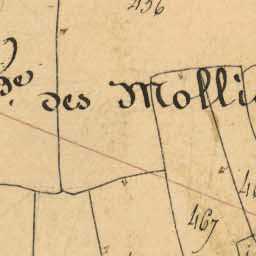 436
de des Molli
467
46